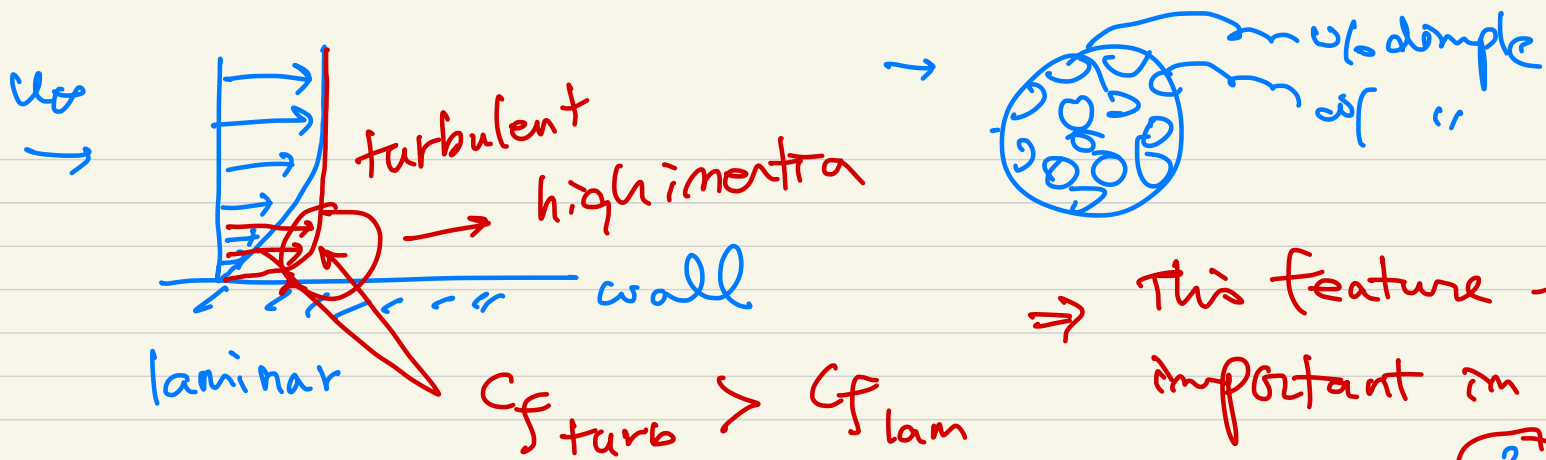 U∞
turbulent
high inertia
wall
laminar
Cf turb > Cf lam
w/o dimple
w/ "
⇒ This feature
important in